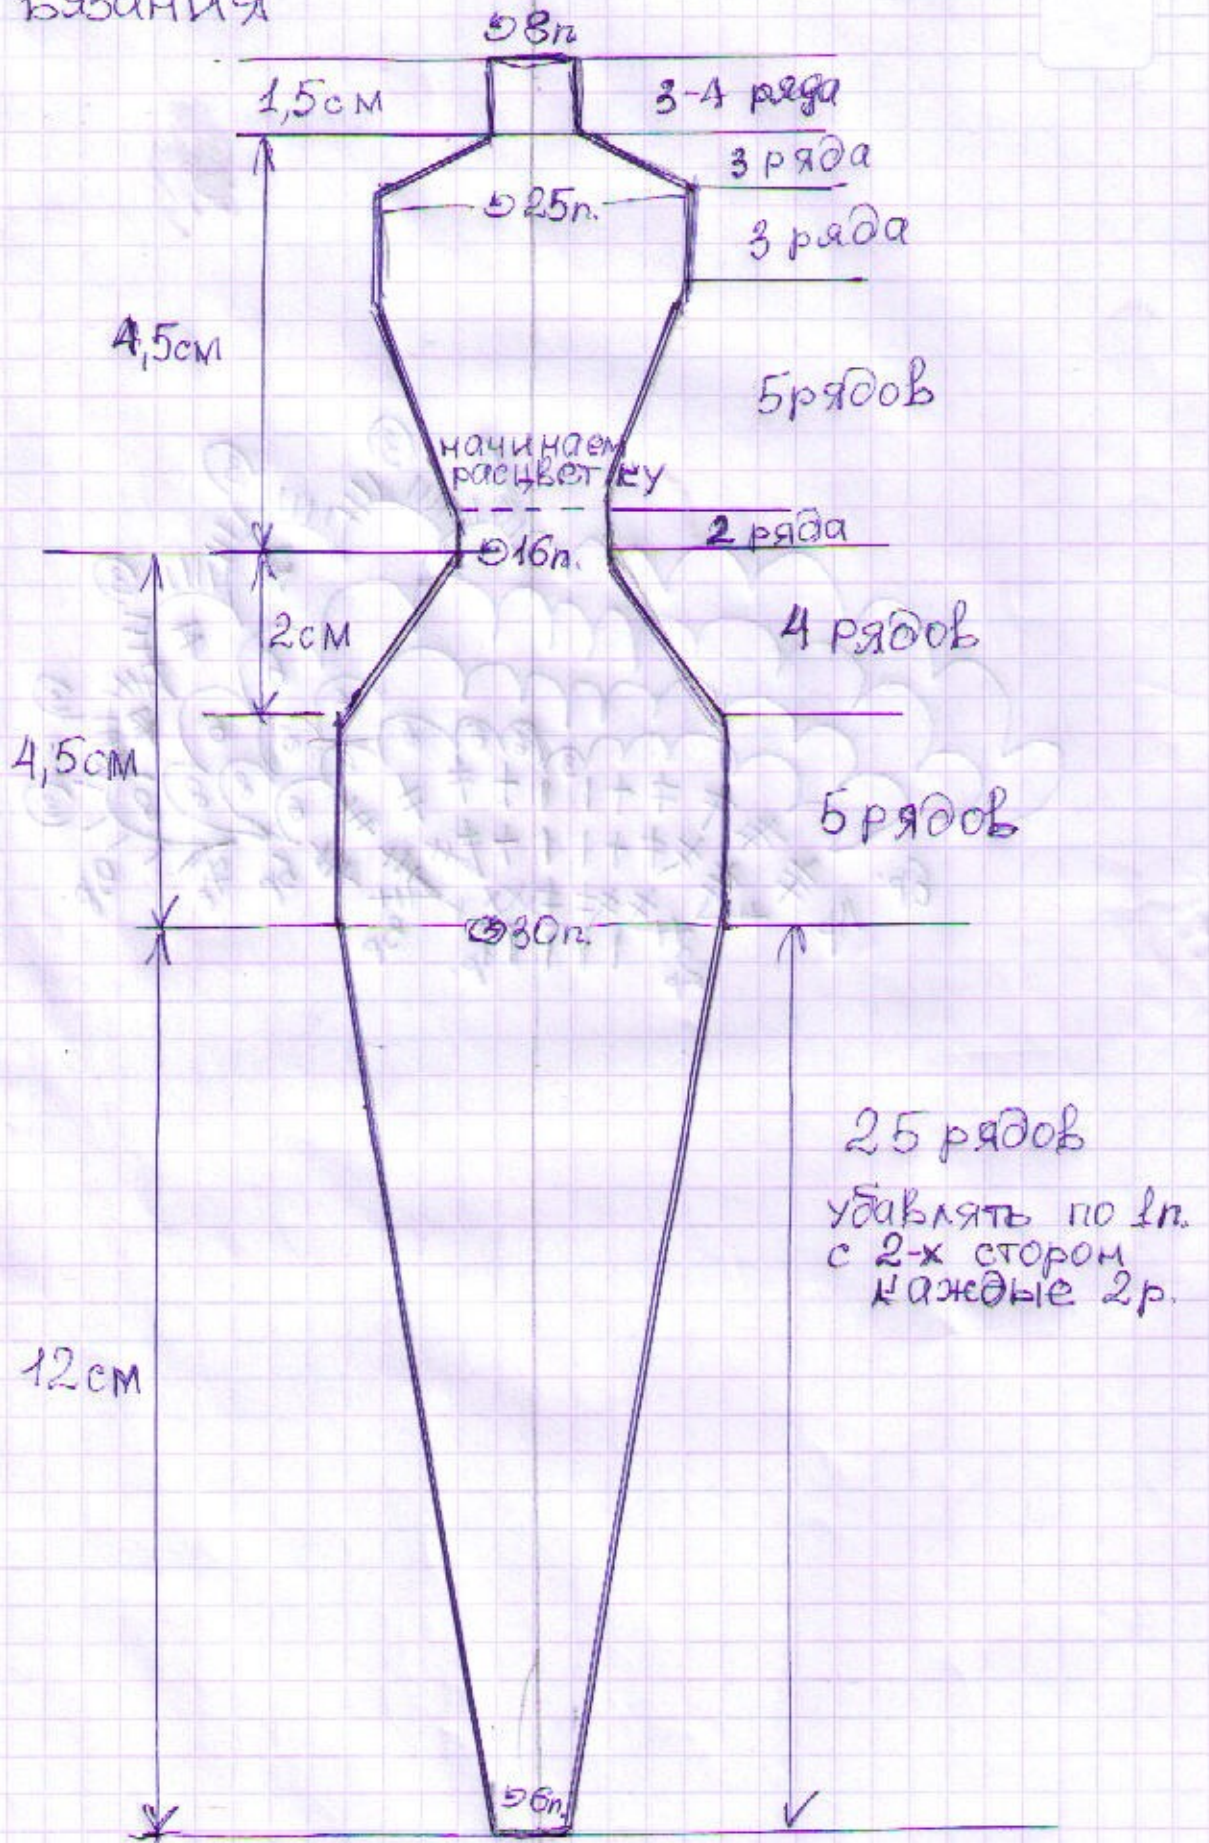 вязания
8п
1,5см
3-4 ряда
3 ряда
25п.
3 ряда
4,5см
5рядов
начинаем
расцветку
2 ряда
16п.
2см
4 рядов
4,5см
5рядов
30п.
25 рядов
убавлять по 1п.
с 2-х сторон
каждые 2р.
12см
6п.